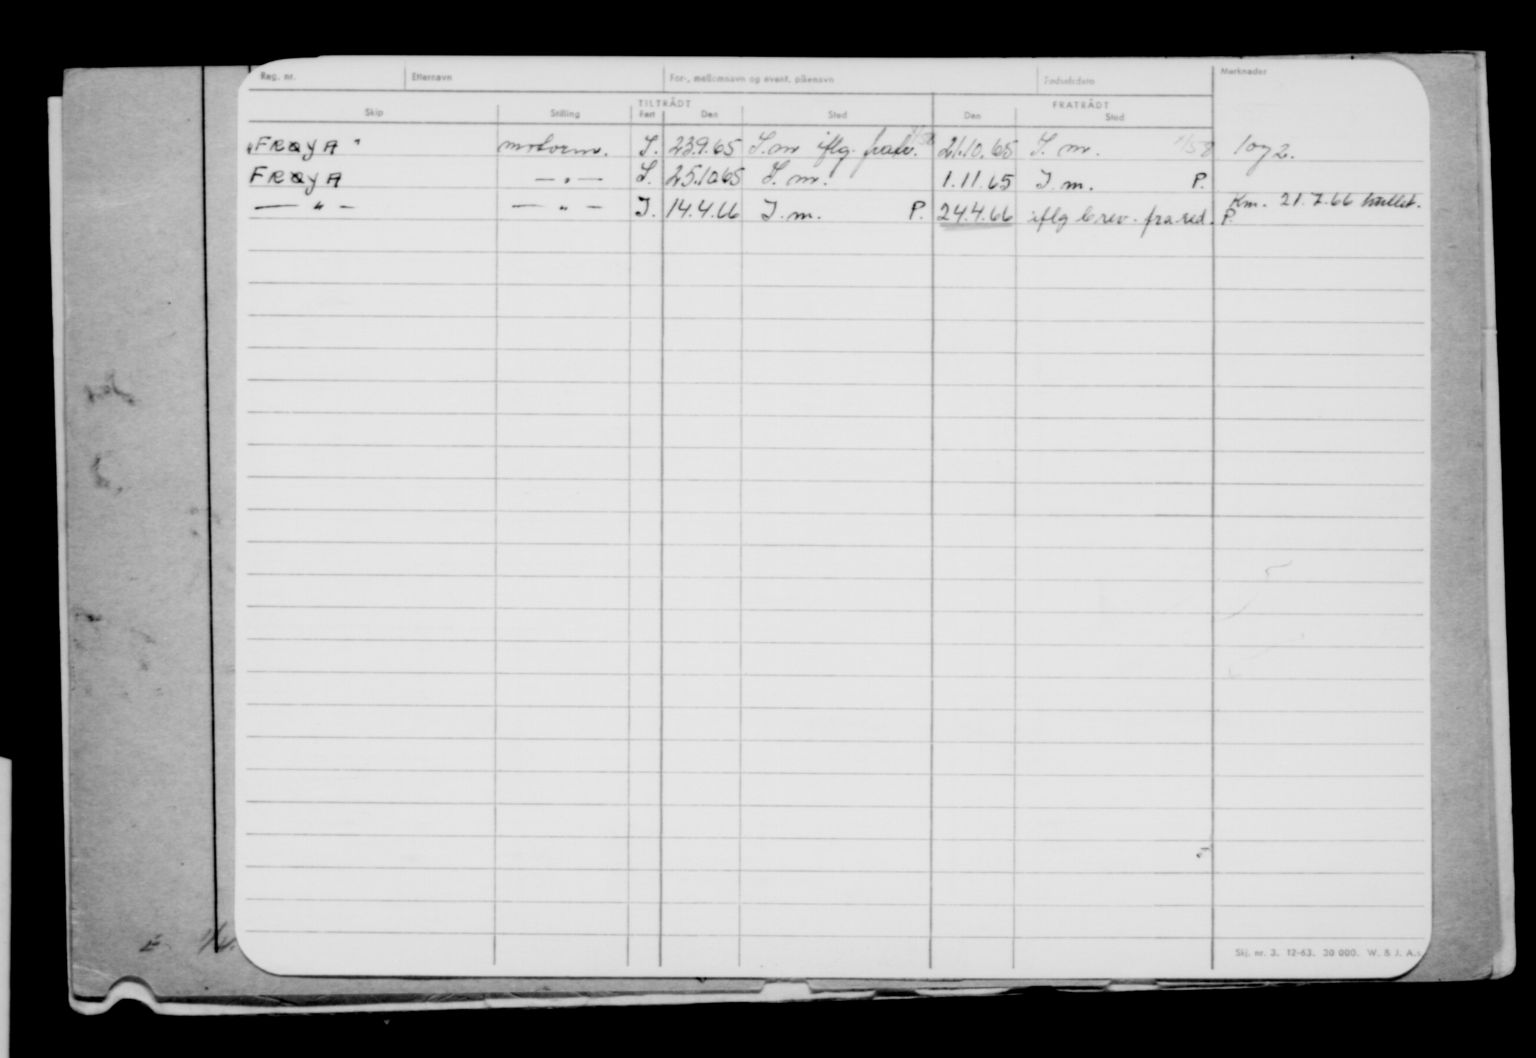 Reg. nr. Etternavn For-, mellomnavn og event. pikenavn Fødselsdato Merknader
TILTRÅDT FRATRÅDT
Skip Stilling Fart Den Sted Den Sted
"FRØYA" motorm. I. 23.9.65 I.m iflg. fratr. 21.10.65 I. m. 1/58 1 og 2.
FRØYA — " — I. 25.10.65 I. m. 1.11.65 I. m. P.
— " — — " — I. 14.4.66 I. m. P. 24.4.66 iflg brev. fra red. P. Km. 21.7.66
Skj. nr. 3. 12-63. 20 000. W. & J. A.s